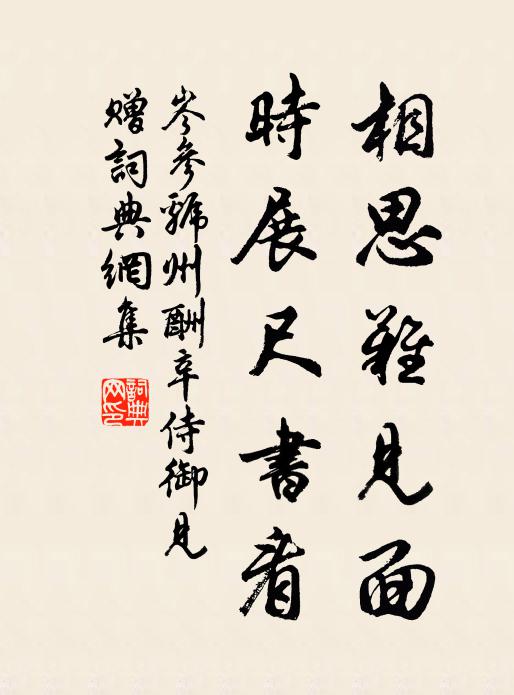 相思難見面
時展尺書看
岑參虢州酬辛侍御見
贈詞典網集
詞典
网印